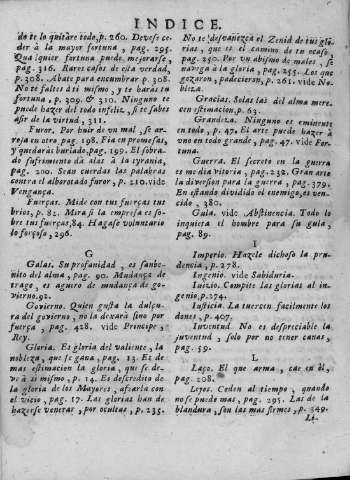 INDICE.
do te lo quitare todo, p. 260. Devese ce-
der à la mayor fortuna, pag. 295.
Qualquier fortuna puede mejorarse,
pag. 316. Rares casos de esta verdad,
p. 308. Abate para encumbrar p. 308.
No te faltes à ti mismo, y te haràs tu
fortuna, p. 309. & 310. Ninguno te
puede hazer del todo infeliz, si te sabes
asir de la virtud, 311.
Furor. Por huir de un mal, se ar-
roja en otro pag. 198. Fia en promesas,
y quedaràs burlado, pag. 199. El sobra-
do sufrimiento dà alas à la tyrania,
pag. 200. Sean cuerdas las palabras
contra el alborotado furor, p. 210. vide
Vengança.
Fuerças. Mide con tus fuerças tus
brios, p. 82. Mira si la empresa es so-
bre tus fuerças, 84. Hagase voluntario
lo forçoso, 296.
G
Galas. Su profanidad, es sambe-
nito del alma, pag. 90. Mudança de
trage, es aguero de mudança de go-
vierno. 92.
Govierno. Quien gusta la dulçu-
ra del govierno, no la dexarà sino por
fuerça, pag. 428. vide Principe,
Rey.
Gloria. Es gloria del valiente, la
nobleza, que se gana, pag. 13. Es de
mas estimacion la gloria, que se de-
ve à si mismo, p. 14. Es descredito de
la gloria de los Mayores, afearla con
el vicio, pag. 17. Las glorias han de
hazerse venerar, por ocultas, p. 235.
No te desvanezca el Zenid de tus glo-
rias, que es el camino de tu ocaso,
pag. 250. Por un abismo de males, se
navega à la gloria, pag. 255. Los que
gozaron, padecieron, p. 261. vide No-
bleza.
Gracias. Solas las del alma mere-
cen estimacion, p. 63.
Grandeza. Ninguno es eminente
en todo, p. 47. El arte puede hazer à
uno en todo grande, pag. 47. vide For-
tuna.
Guerra. El secreto en la guerra
es media vitoria, pag. 232. Gran arte
la diversion para la guerra, pag. 379.
En estando dividido el enemigo, es ven-
cido, 380.
Gula. vide Abstinencia. Todo lo
inquieta el hombre para su gula,
pag. 89.
I
Imperio. Hazele dichoso la pru-
dencia, p. 278.
Ingenio. vide Sabiduria.
Iuizio. Compite las glorias al in-
genio, p. 274.
Iusticia. La tuercen facilmente los
dones, p. 407.
Inventud. No es despreciable la
juventud, solo por no tener canas,
pag. 59.
L
Laço. El que arma, cae en èl,
pag. 208.
Leyes. Ceden al tiempo, quando
no se puede mas, pag. 295. Las de la
blandura, son las mas firmes, p. 349.